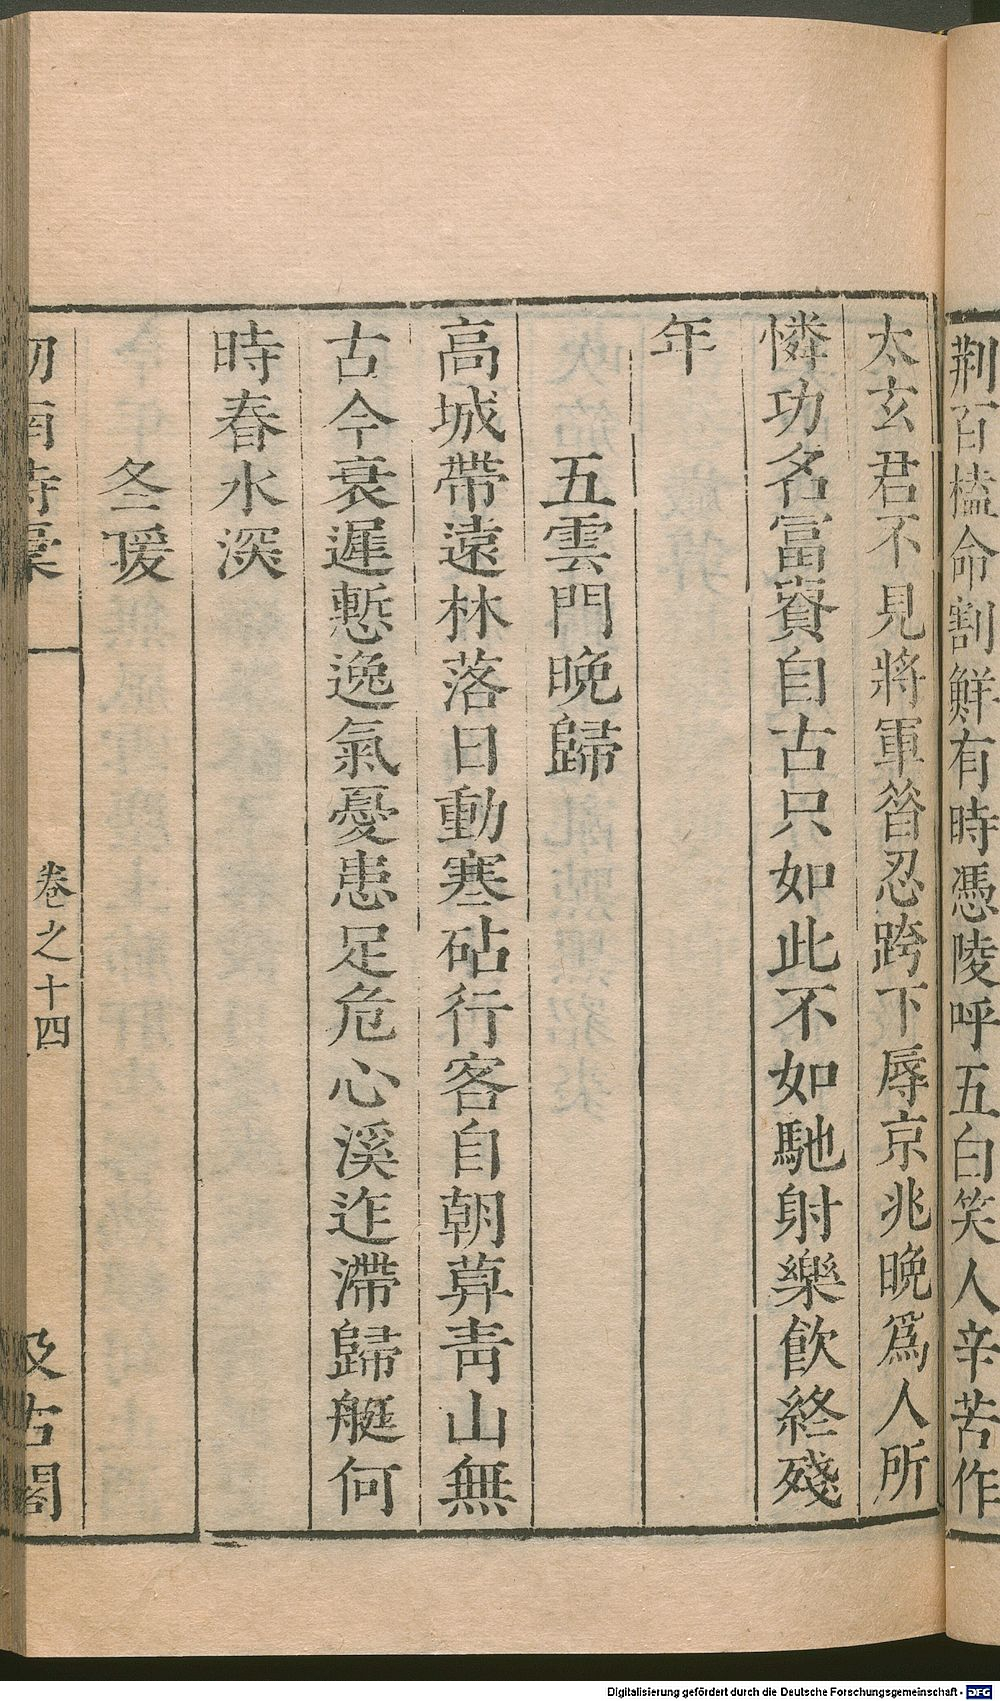 荆百榼命割鮮有時憑陵呼五白笑人辛苦作
太玄君不見將軍昝忍跨下辱京兆晚爲人所
憐功名冨貴自古只如此不如馳射樂飲終殘
年
五雲門晚歸
高城帶遠林落日動寒砧行客自朝莫靑山無
古今衰遲慙逸氣憂患足危心溪迮滯歸艇何
時春水深
冬暖
劒南詩稾
卷之十四
汲古閣
Digitalisierung gefördert durch die Deutsche Forschungsgemeinschaft - DFG